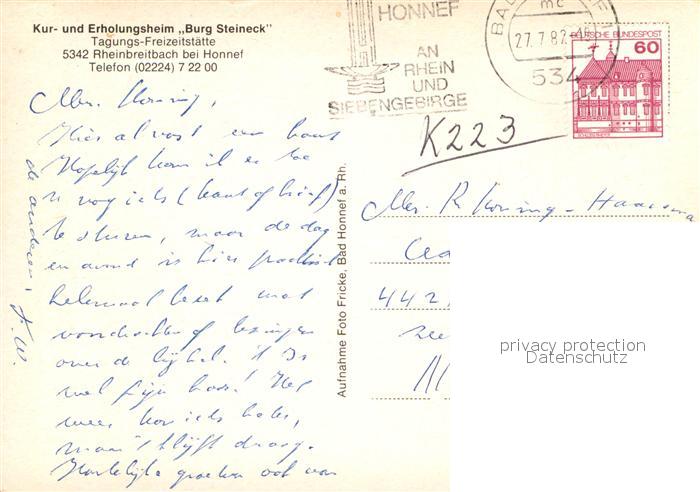 Kur- und Erholungsheim „Burg Steineck"
Tagungs-Freizeitstätte
5342 Rheinbreitbach bei Honnef
Telefon (02224) 7 22 00
HONNEF
AN
RHEIN
UND
SIEBENGEBIRGE
BAD
27.7.82
534
DEUTSCHE BUNDESPOST
60
K223
Mev. Koning,
Hier alvast een kaart
Hopelijk kom ik er toe
u nog iets (kaart of brief)
te sturen, maar de dag
en avond is hier
helemaal bezet met
of lezingen
over de bijbel. 't Is
wel fijn hoor! Het
weer kon iets beter,
maar 't blijft droog.
Hartelijke groeten ook van
de anderen, J.W.
Aufnahme Foto Fricke, Bad Honnef a. Rh.
Mev. R. Koning - Haaksma
442
privacy protection
Datenschutz